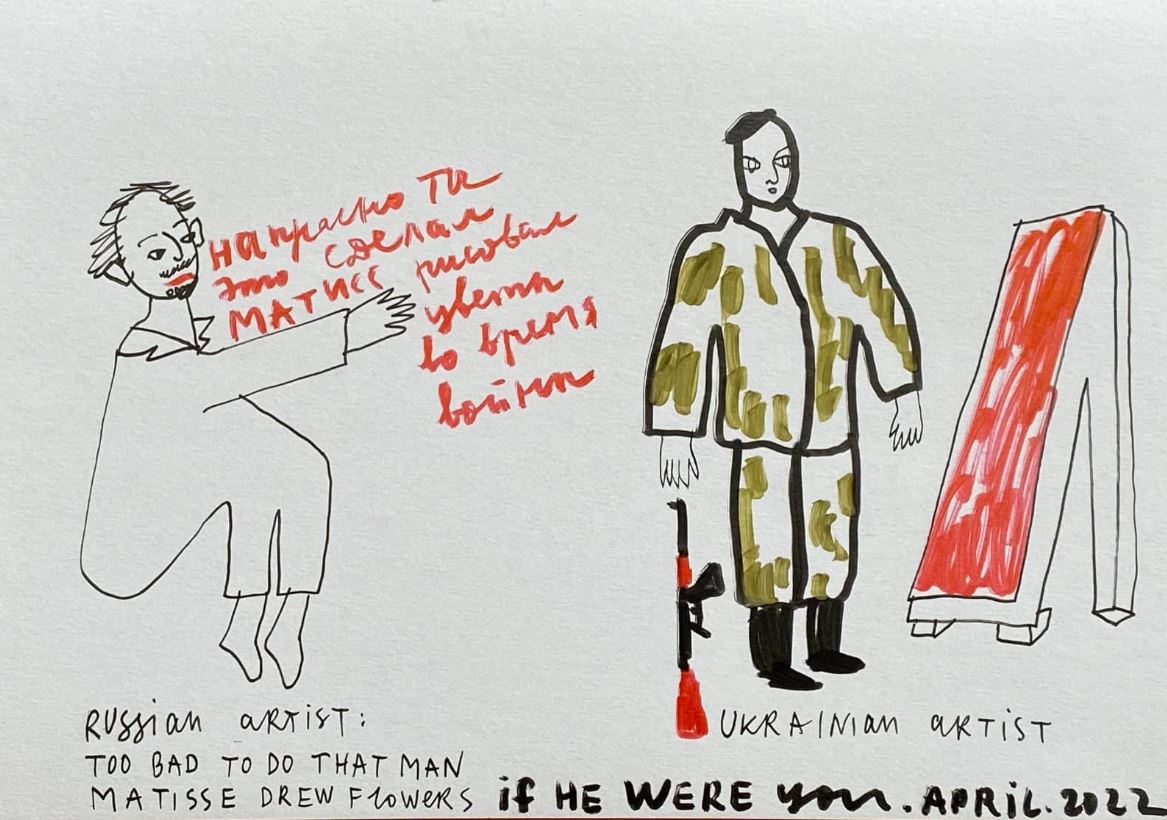 напрасно ты
это сделал
МАТИСС рисовал
цветы
во время
войны
RUSSIAN ARTIST:
TOO BAD TO DO THAT MAN
MATISSE DREW FLOWERS
UKRAINIAN ARTIST
if HE WERE you. APRIL. 2022